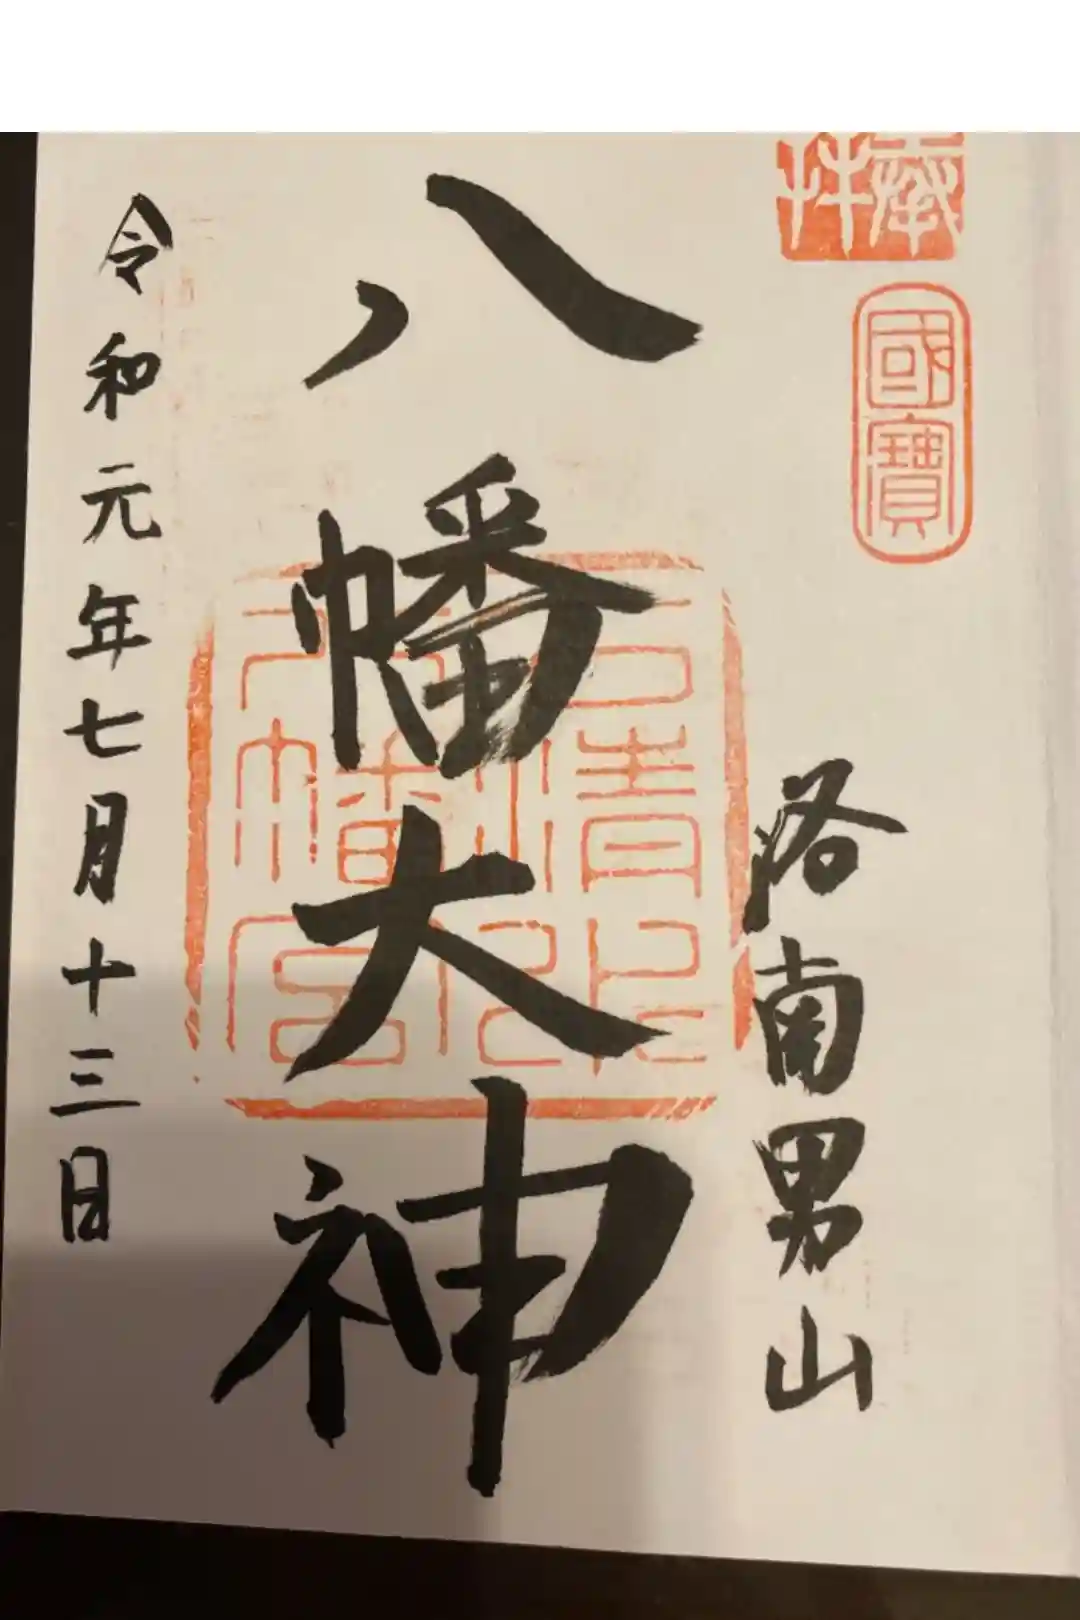 奉拝
國寶
洛南男山
八幡大神
石清水八幡宮
令和元年七月十三日